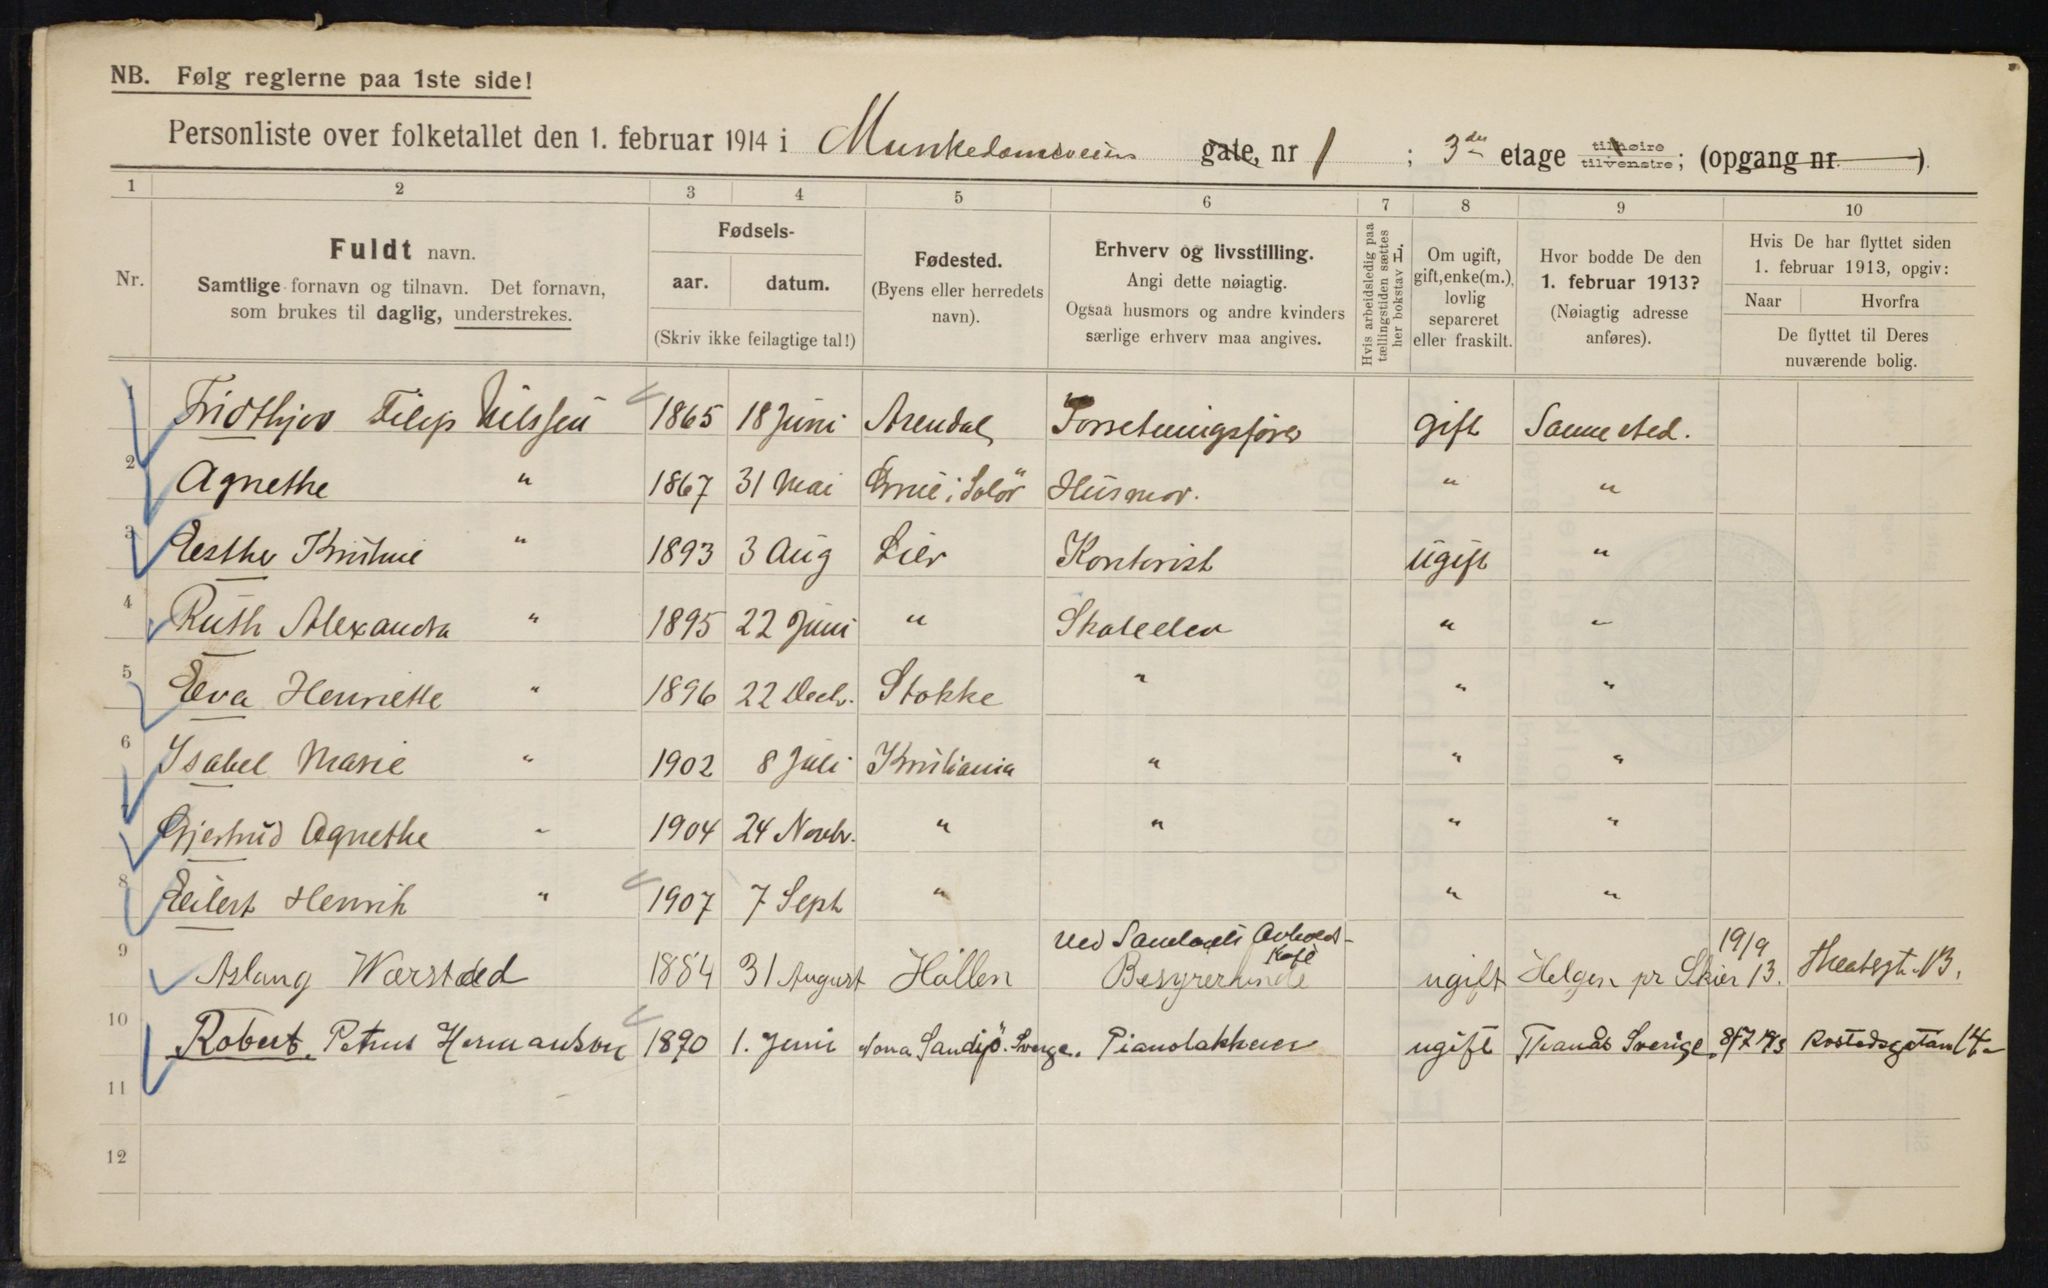 NB. Følg reglerne paa 1ste side!
Personliste over folketallet den 1. februar 1914 i Munkedamsveien gate, nr 1 ; 3de etage tilhøire tilvenstre; (opgang nr. )
1 2 3 4 5 6 7 8 9 10
Nr.
Fuldt navn.
Samtlige fornavn og tilnavn. Det fornavn,
som brukes til daglig, understrekes.
Fødsels-
aar. datum.
(Skriv ikke feilagtige tal!)
Fødested.
(Byens eller herredets
navn).
Erhverv og livsstilling.
Angi dette nøiagtig.
Ogsaa husmors og andre kvinders
særlige erhverv maa angives.
Hvis arbeidsledig paa
tællingstiden sættes
her bokstav L.
Om ugift,
gift, enke(m.),
lovlig
separeret
eller fraskilt.
Hvor bodde De den
1. februar 1913?
(Nøiagtig adresse
anføres).
Hvis De har flyttet siden
1. februar 1913, opgiv:
Naar Hvorfra
De flyttet til Deres
nuværende bolig.
1 Fridthjov Filip Nilssen 1865 18 Juni Arendal Forretningsfører gift Samme sted.
2 Agnethe " 1867 31 Mai Grue i Solör Husmor. " "
3 Esther Kristine " 1893 3 Aug Lier Kontorist ugift "
4 Ruth Alexandra " 1895 22 Juni " Skoleelev " "
5 Eva Henriette " 1896 22 Decbr. Stokke " " "
6 Isabel Marie " 1902 8 Juli Kristiania " " "
7 Gjertrud Agnethe " 1904 24 Novbr. " " " "
8 Eilert Henrik " 1907 7 Sept " " "
9 Aslaug Wærstad 1884 31 August Hollen Ved Samlaets Avholds-
Kafè
Bestyrerinde ugift Helgen pr Skien 19/9 13. Theatergt. 13.
10 Robert Petrus Hermanson 1890 1. Juni Norra Sandsjö. Sverge. Pianolakkerer ugift Tranås Sverige. 8/7 1913 Rostedsgatan 14
11
12